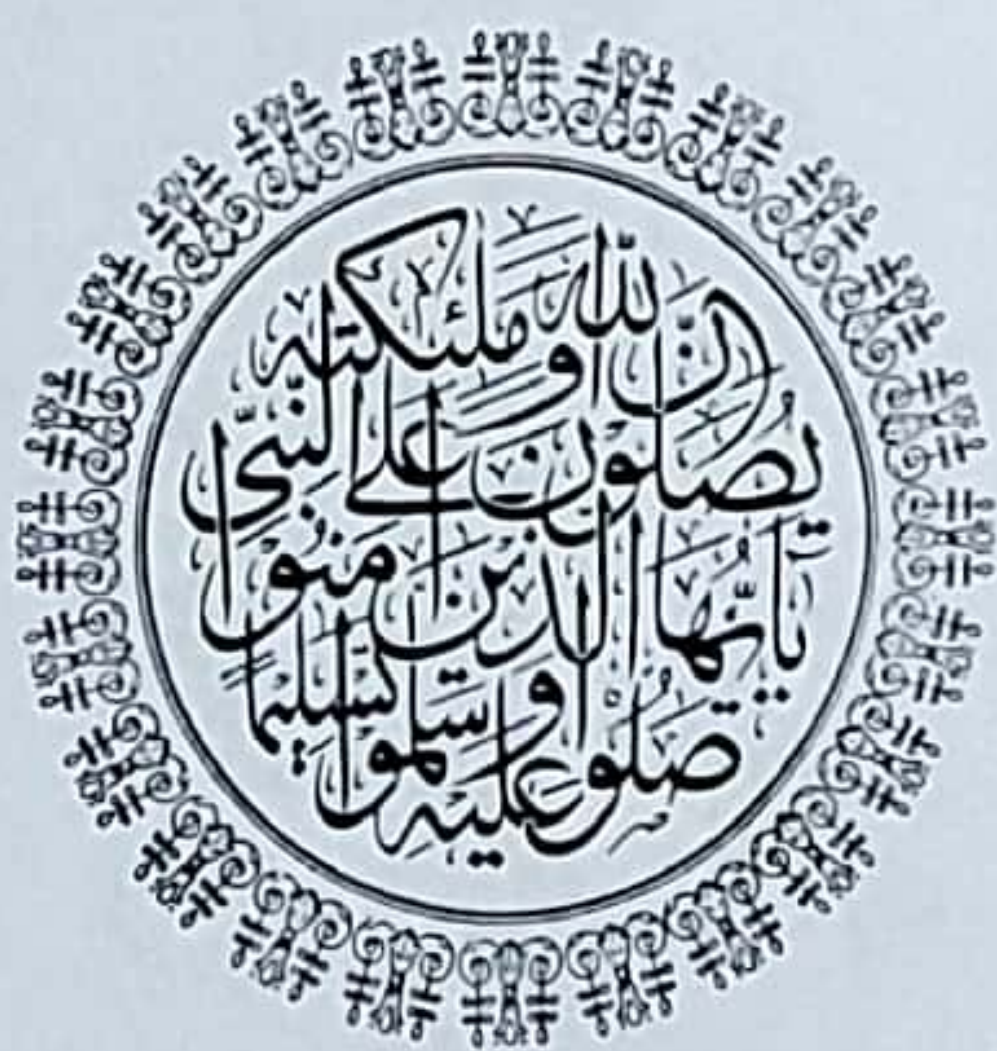 ان الله وملئكته
يصلون على النبى
يايها الذين امنوا
صلوا عليه وسلموا تسليما